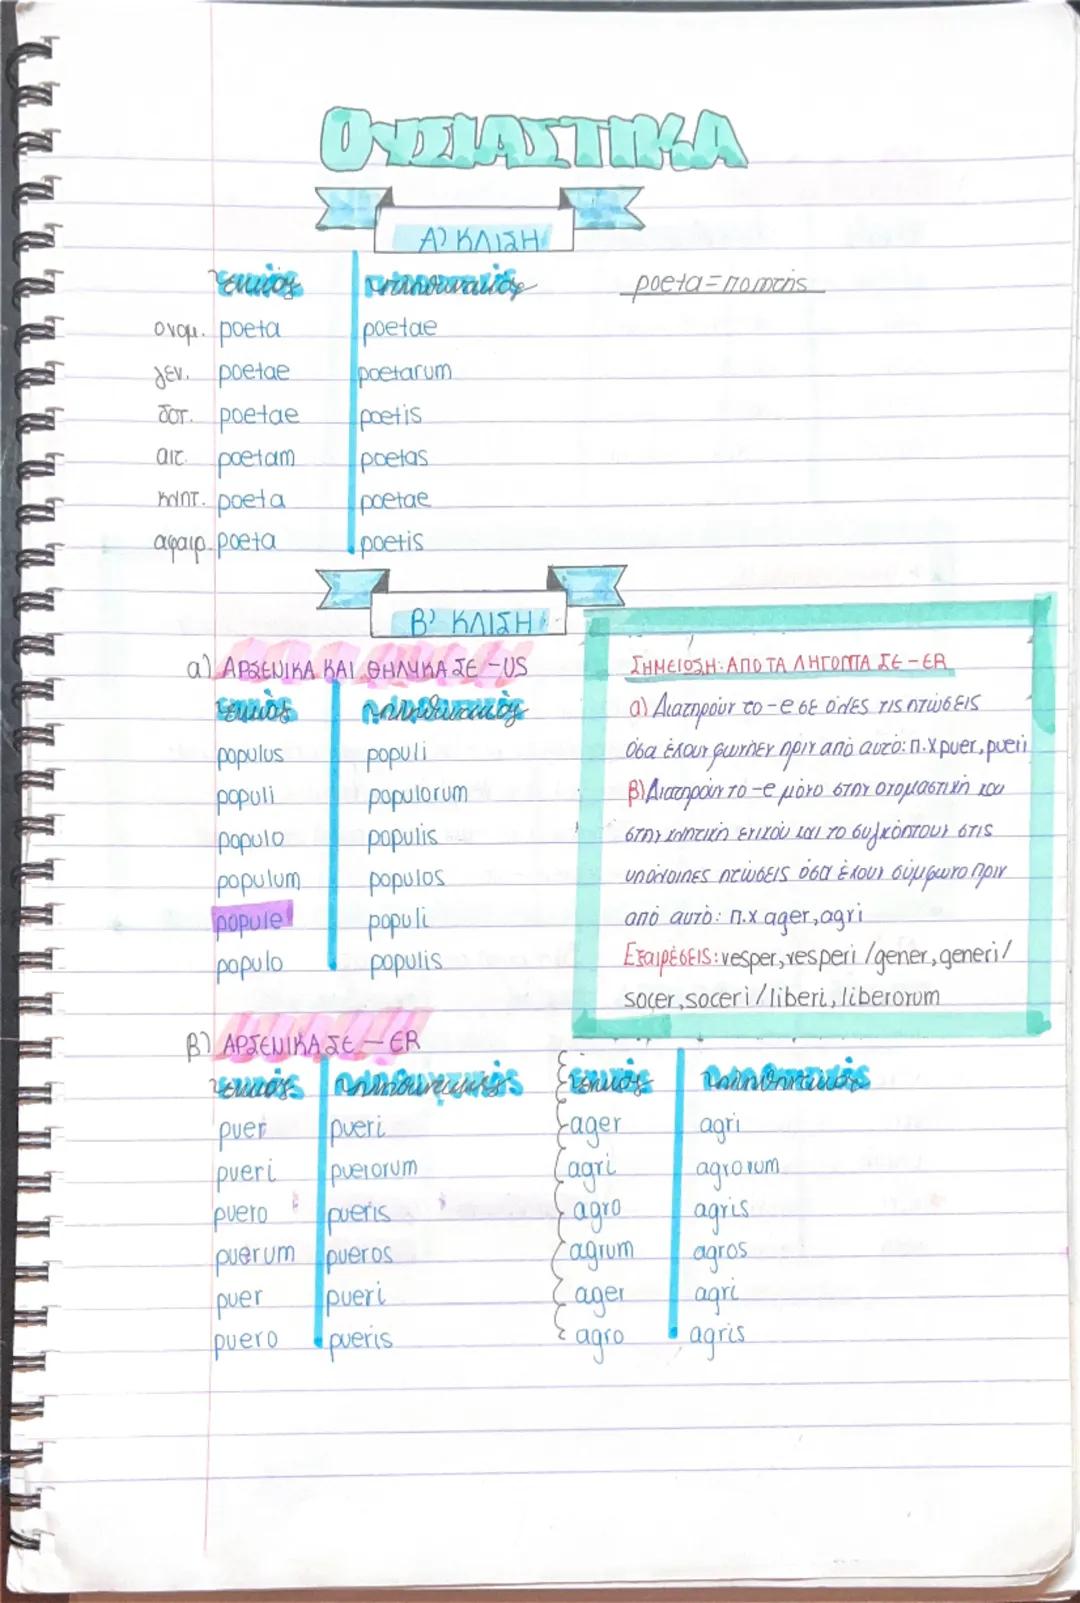 ΟΥΣΙΑΣΤΙΚΑ
Α) ΚΛΙΣΗ
Ενικός Πληθυντικός poeta=ποιητής
ονομ. poeta poetae
γεν. poetae poetarum
δοτ. poetae poetis
αιτ. poetam poetas
κλητ. poeta poetae
αφαιρ. poeta poetis
Β' ΚΛΙΣΗ
α) ΑΡΣΕΝΙΚΑ ΚΑΙ ΘΗΛΥΚΑ ΣΕ -US
Ενικός Πληθυντικός
populus populi
populi populorum
populo populis
populum populos
popule populi
populo populis
ΣΗΜΕΙΩΣΗ: ΑΠΟ ΤΑ ΛΗΓΟΝΤΑ ΣΕ -ER
α) Διατηρούν το -e σε όλες τις πτώσεις
όσα έχουν φωνήεν πριν από αυτό: π.χ puer, pueri
β) Διατηρούν το -e μόνο στην ονομαστική και
στην κλητική ενικού και το συγκόπτουν στις
υπόλοιπες πτώσεις όσα έχουν σύμφωνο πριν
από αυτό: π.χ ager, agri
Εξαιρέσεις: vesper, vesperi /gener, generi/
socer, soceri/liberi, liberorum
β) ΑΡΣΕΝΙΚΑ ΣΕ -ER
Ενικός Πληθυντικός Ενικός Πληθυντικός
puer pueri ager agri
pueri puerorum agri agrorum
puero pueris agro agris
puerum pueros agrum agros
puer pueri ager agri
puero pueris agro agris